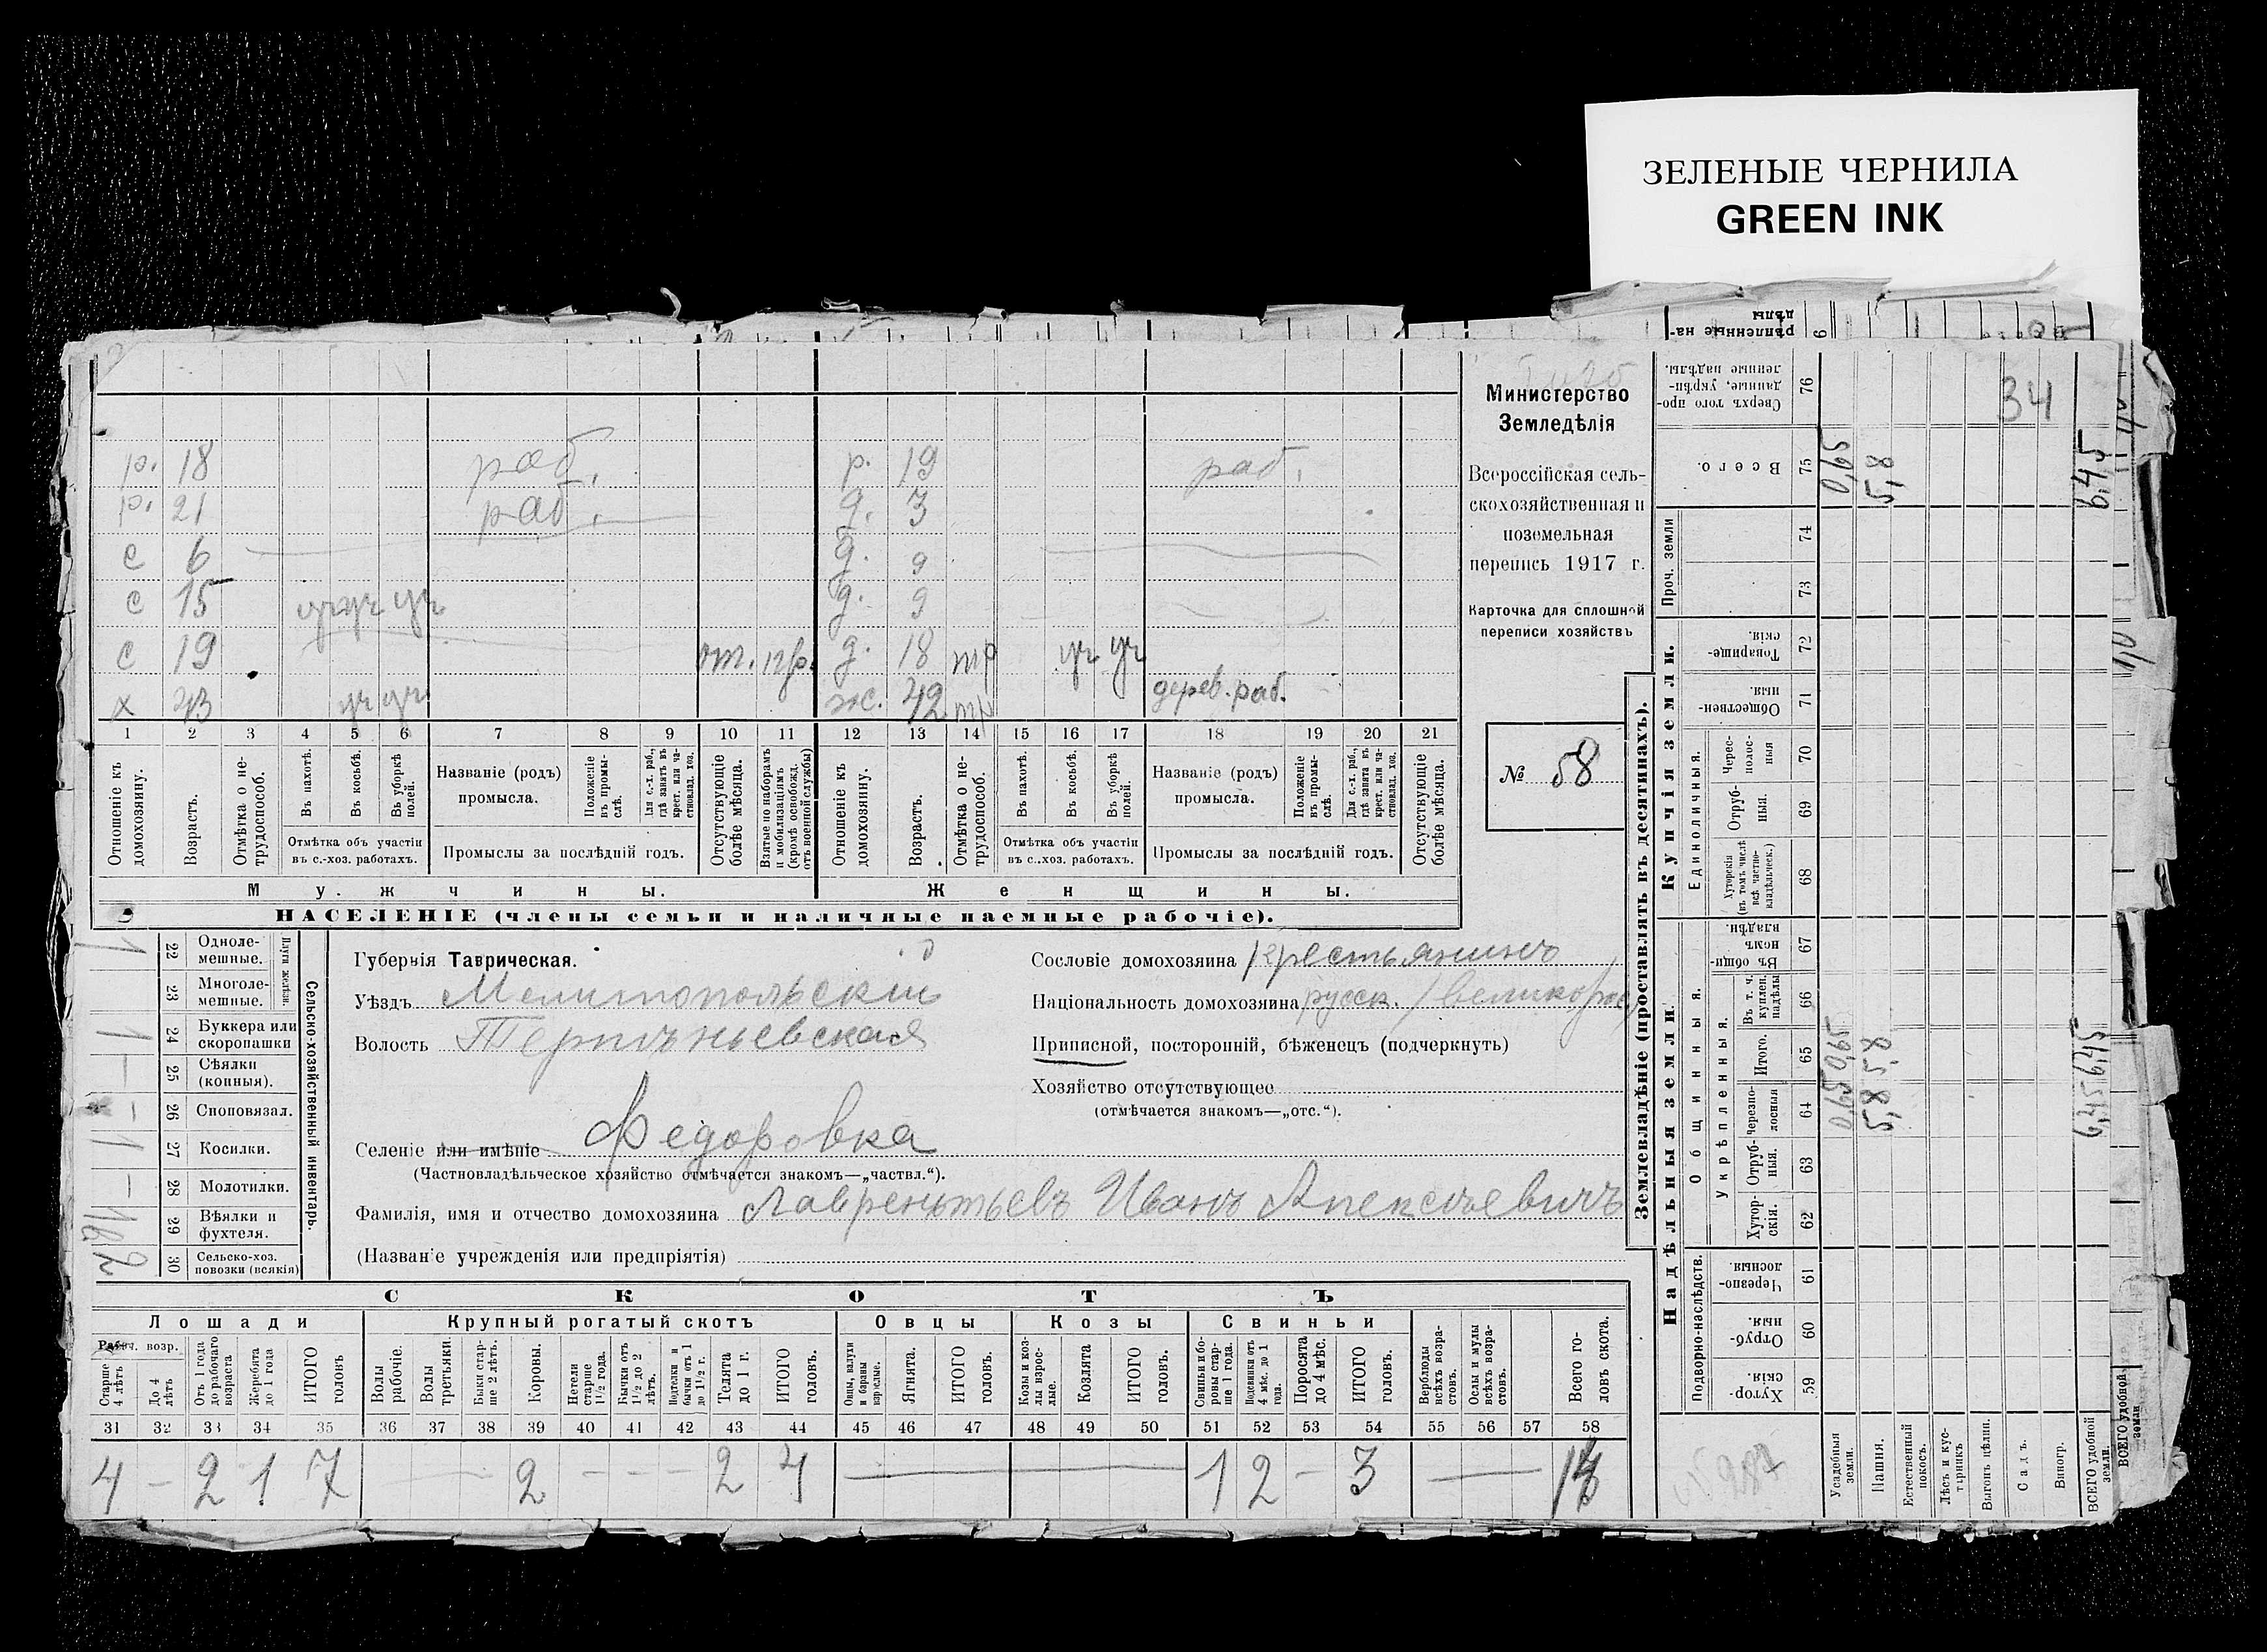 ЗЕЛЕНЫЕ ЧЕРНИЛА
GREEN INK
Министерство
Земледѣлія
Всероссійская сель-
скохозяйственная и
поземельная
перепись 1917 г.
Карточка для сплошной
переписи хозяйствъ
№ 58
р. 18 раб. р. 19 раб.
р. 21 раб. д. 3
с 6 д. 9
с 15 уч уч уч д. 9
с 19 от. д. 18 уч уч
х 43 уч уч ж. 42 дерев. раб.
1 2 3 4 5 6 7 8 9 10 11 12 13 14 15 16 17 18 19 20 21
Отношеніе къ домохозяину.
Возрастъ.
Отмѣтка о не-трудоспособ.
Въ пахотѣ.
Въ косьбѣ.
Въ уборкѣ полей.
Отмѣтка объ участіи въ с.-хоз. работахъ.
Названіе (родъ) промысла.
Положеніе въ промы-слѣ.
Для с.-х. раб., гдѣ занятъ въ крест. или ча-стновлад. хоз.
Промыслы за послѣдній годъ.
Отсутствующіе болѣе мѣсяца.
Взятые по наборамъ и мобилизаціямъ (кромѣ освобожд. отъ военной службы)
Отношеніе къ домохозяину.
Возрастъ.
Отмѣтка о не-трудоспособ.
Въ пахотѣ.
Въ косьбѣ.
Въ уборкѣ полей.
Отмѣтка объ участіи въ с.-хоз. работахъ.
Названіе (родъ) промысла.
Положеніе въ промы-слѣ.
Для с.-х. раб., гдѣ занятъ въ крест. или ча-стновлад. хоз.
Промыслы за послѣдній годъ.
Отсутствующіе болѣе мѣсяца.
Мужчины. Женщины.
НАСЕЛЕНІЕ (члены семьи и наличные наемные рабочіе).
Сельско-хозяйственный инвентарь.
Плуги желѣзн.
1 22 Одноле-мешные.
23 Многоле-мешные.
1 24 Буккера или скоропашки
— 25 Сѣялки (конныя).
— 26 Споповязал.
1 27 Косилки.
— 28 Молотилки.
1 29 Вѣялки и фухтеля.
2 30 Сельско-хоз. повозки (всякія)
Губернія Таврическая.
Уѣздъ Мелитопольскій
Волость Терпѣньевская
Селеніе или имѣніе Федоровка
(Частновладѣльческое хозяйство отмѣчается знакомъ—„частвл.“).
Фамилія, имя и отчество домохозяина Лаврентьевъ Иванъ Алексѣевичъ
(Названіе учрежденія или предпріятія)
Сословіе домохозяина крестьянинъ
Національность домохозяина русск. (великорос)
Приписной, посторонній, бѣженецъ (подчеркнуть)
Хозяйство отсутствующее
(отмѣчается знакомъ—„отс.“).
СКОТЪ
Лошади Крупный рогатый скотъ Овцы Козы Свиньи
Рабоч. возр.
Старше 4 лѣтъ
До 4 лѣтъ
Отъ 1 года до рабочаго возраста
Жеребята до 1 года
ИТОГО головъ
Волы рабочіе.
Волы третьяки.
Быки стар-ше 2 лѣтъ.
Коровы.
Нетели старше 1½ года.
Бычки отъ 1½ до 2 лѣтъ.
Подтелки и бычки отъ 1 до 1½ г.
Телята до 1 г.
ИТОГО головъ.
Овцы, валухи и бараны взрослые.
Ягнята.
ИТОГО головъ.
Козы и коз-лы взрос-лые.
Козлята
ИТОГО головъ.
Свиньи и бо-ровы стар-ше 1 года.
Подсвинки отъ 4 мѣс. до 1 года.
Поросята до 4 мѣс.
ИТОГО головъ.
Верблюды всѣхъ возра-стовъ.
Ослы и мулы всѣхъ возра-стовъ.
Всего го-ловъ скота.
31 32 33 34 35 36 37 38 39 40 41 42 43 44 45 46 47 48 49 50 51 52 53 54 55 56 57 58
4 — 2 1 7 — 2 — — — 2 4 — 1 2 — 3 —
Землевладѣніе (проставлять въ десятинахъ).
Надѣльныя земли. Купчія земли. Проч. земли
Подворно-наслѣдств. Общинныя. Укрѣпленныя. Единоличныя.
Хутор-скія. 59
Отруб-ныя. 60
Черезпо-лосныя. 61
Хутор-скія. 62
Отруб-ныя. 63
Черезпо-лосныя 64
Итого. 65
Въ т. ч. куплен. надѣлы 66
Въ общи-номъ владѣн. 67
Хуторскія (въ томъ числѣ всѣ частно-владѣльческ.) 68
Отруб-ныя. 69
Черес-полос-ныя 70
Обществен-ныя. 71
Товарище-скія. 72
73
74
Всего. 75
Сверхъ того про-данные, укрѣп-ленные надѣлы. 76
Усадебныя земли. 0,65 0,65 0,65
Пашня. 5,8 5,8 5,8
Естественный покосъ.
Лѣсъ и кус-тарникъ
Выгонъ цѣлин.
Садъ.
Виногр.
ВСЕГО удобной земли. 6,45 6,45 6,45
34
ВСЕГО удобной земли